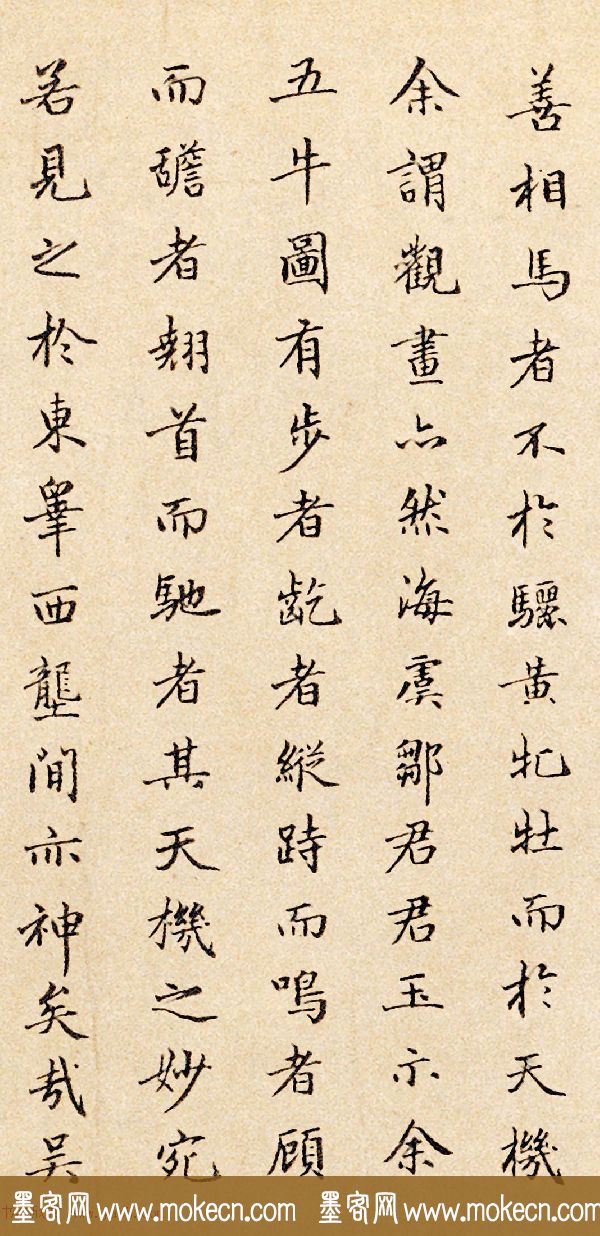 善相馬者不於驪黃牝牡而於天機
余謂觀畫亦然海虞鄒君君玉示余
五牛圖有步者齕者縱跱而鳴者顧
而者翹首而馳者其天機之妙宛
若見之於東臯西壟間亦神矣哉吳
墨客网 www.mokecn.com 墨客网 www.mokecn.com